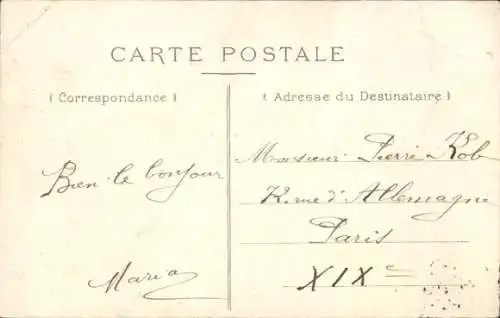 CARTE POSTALE
( Correspondance )
( Adresse du Destinataire )
Bien le bonjour
Maria
Monsieur Pierre Kob
rue d'Allemagne
Paris
XIXe